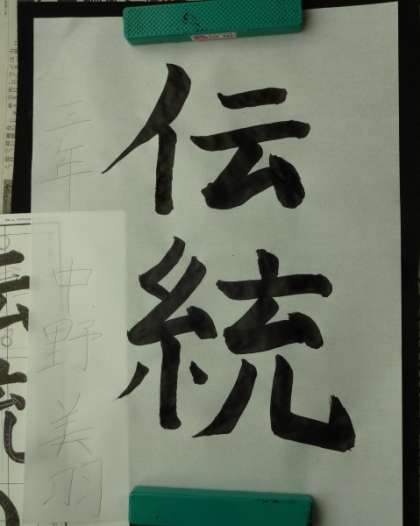 伝統
三年 中野 美羽